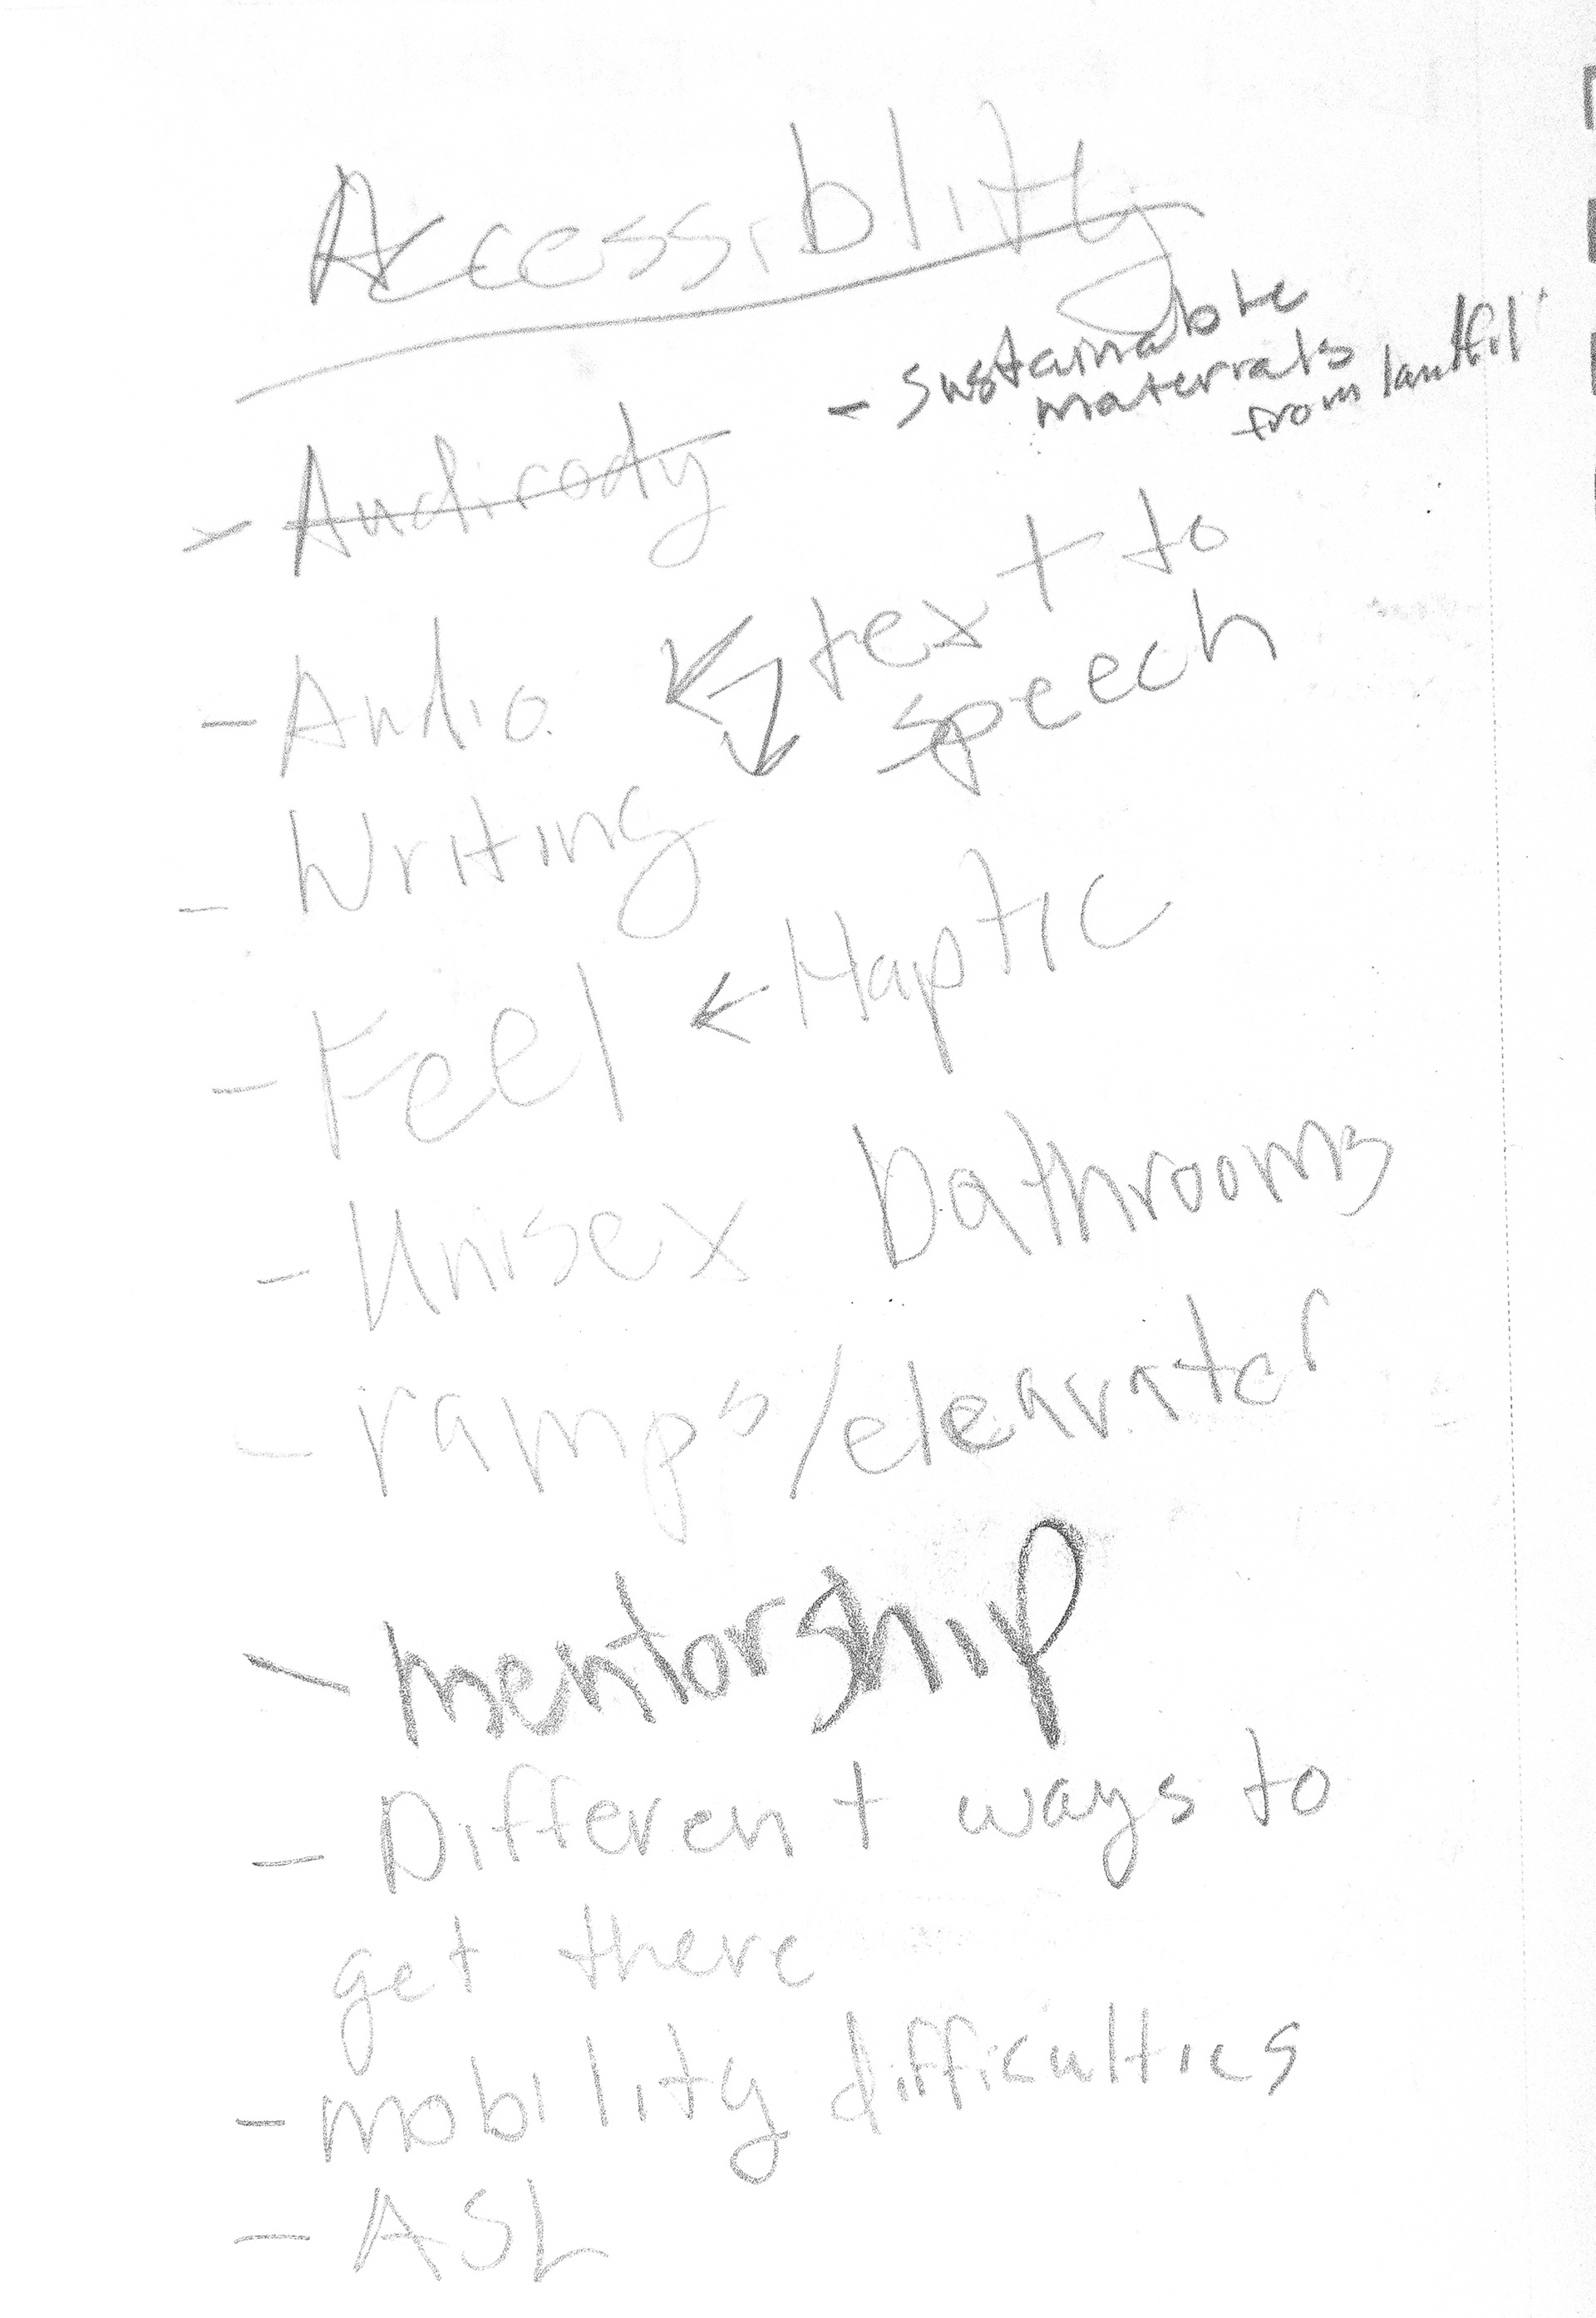 Accessiblity
- sustainable
materials
from landfill
- Audirody
- Audio
text to
speech
- Writing
- Feel ← Haptic
- Unisex bathrooms
- ramps/elearator
- mentorship
- Different ways to
get there
- mobility difficulties
- ASL